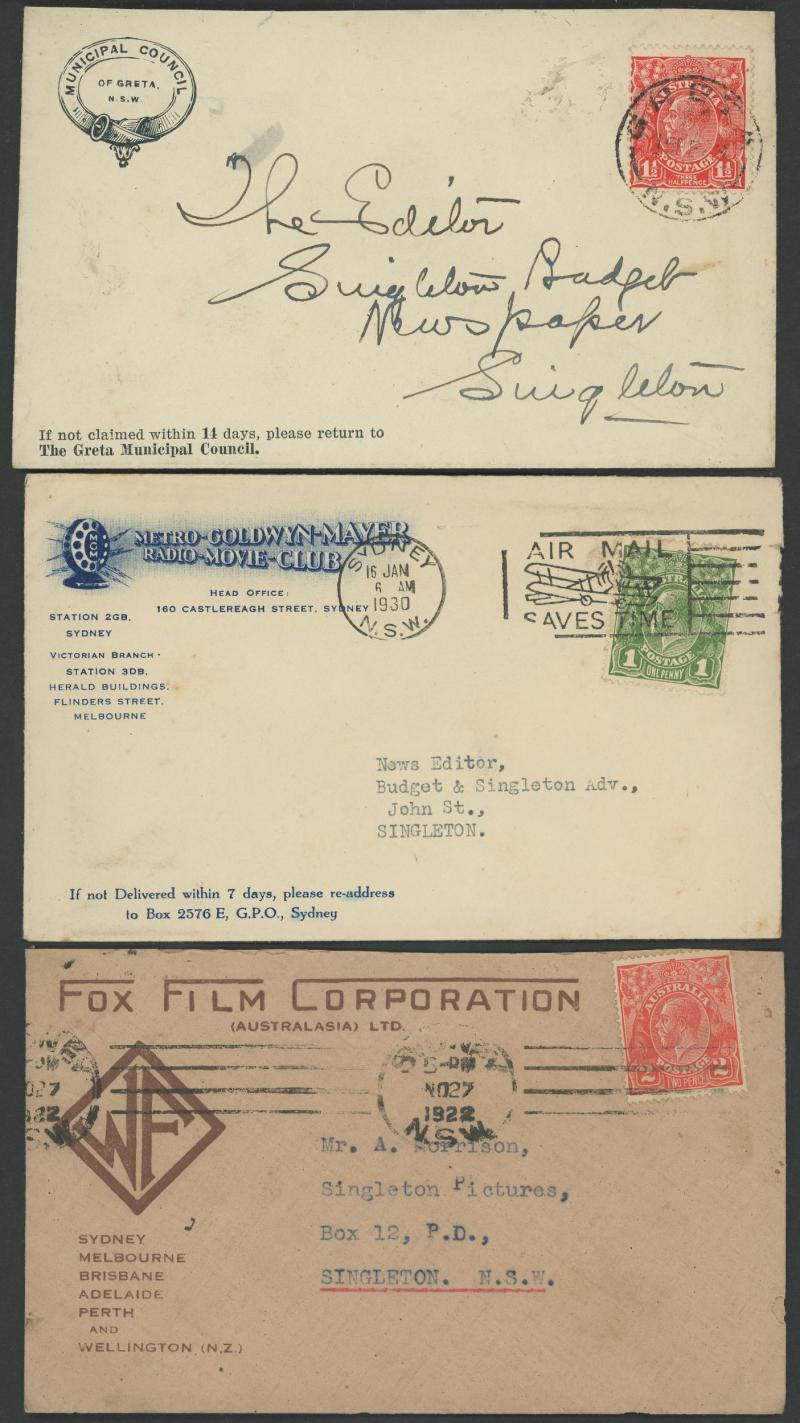 MUNICIPAL COUNCIL
OF GRETA,
N.S.W.
AUSTRALIA
POSTAGE
1½ 1½
THREE
HALFPENCE
N.S.W.
The Editor
Singleton Budget
Newspaper
Singleton
If not claimed within 14 days, please return to
The Greta Municipal Council.
MGM
METRO-GOLDWYN-MAYER
RADIO-MOVIE-CLUB
HEAD OFFICE:
160 CASTLEREAGH STREET, SYDNEY
STATION 2GB,
SYDNEY
VICTORIAN BRANCH -
STATION 3DB,
HERALD BUILDINGS,
FLINDERS STREET,
MELBOURNE
SYDNEY
16 JAN
6 AM
1930
N.S.W.
AIR MAIL
SAVES TIME
POSTAGE
1 1
ONE PENNY
News Editor,
Budget & Singleton Adv.,
John St.,
SINGLETON.
If not Delivered within 7 days, please re-address
to Box 2576 E, G.P.O., Sydney
FOX FILM CORPORATION
(AUSTRALASIA) LTD.
WF
SYDNEY
MELBOURNE
BRISBANE
ADELAIDE
PERTH
AND
WELLINGTON (N.Z.)
PM
NO27
1922
N.S.W.
AUSTRALIA
POSTAGE
2 2
TWO PENCE
Mr. A. Morrison,
Singleton Pictures,
Box 12, P.D.,
SINGLETON. N.S.W.